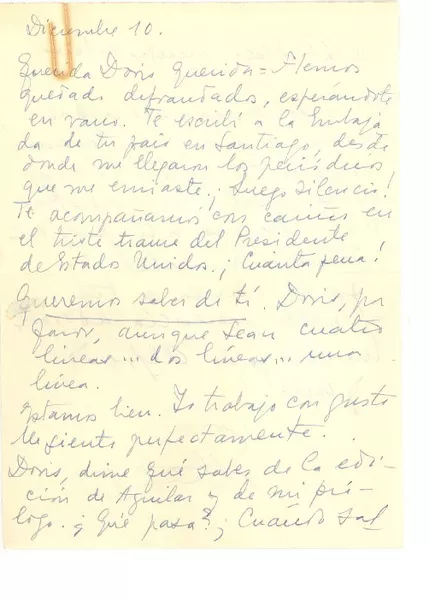 Diciembre 10.
Querida Doris querida = Hemos
quedado defraudados, esperándote
en vano. Te escribí a la Embaja
da de tu país en Santiago, desde
donde me llegaron los periódicos
que me enviaste ¡ Luego silencio!
Te acompañamos con cariño en
el triste trance del Presidente
de Estados Unidos. ¡ Cuánta pena!
Queremos saber de tí. Doris, por
favor, aunque sean cuatro
líneas... dos líneas... una
línea.
Estamos bien. Yo trabajo con gusto
Me siento perfectamente.
Doris, dime qué sabes de la edi-
ción de Aguilar y de mi pró-
logo. ¿ Qué pasa? ¿ Cuándo sal